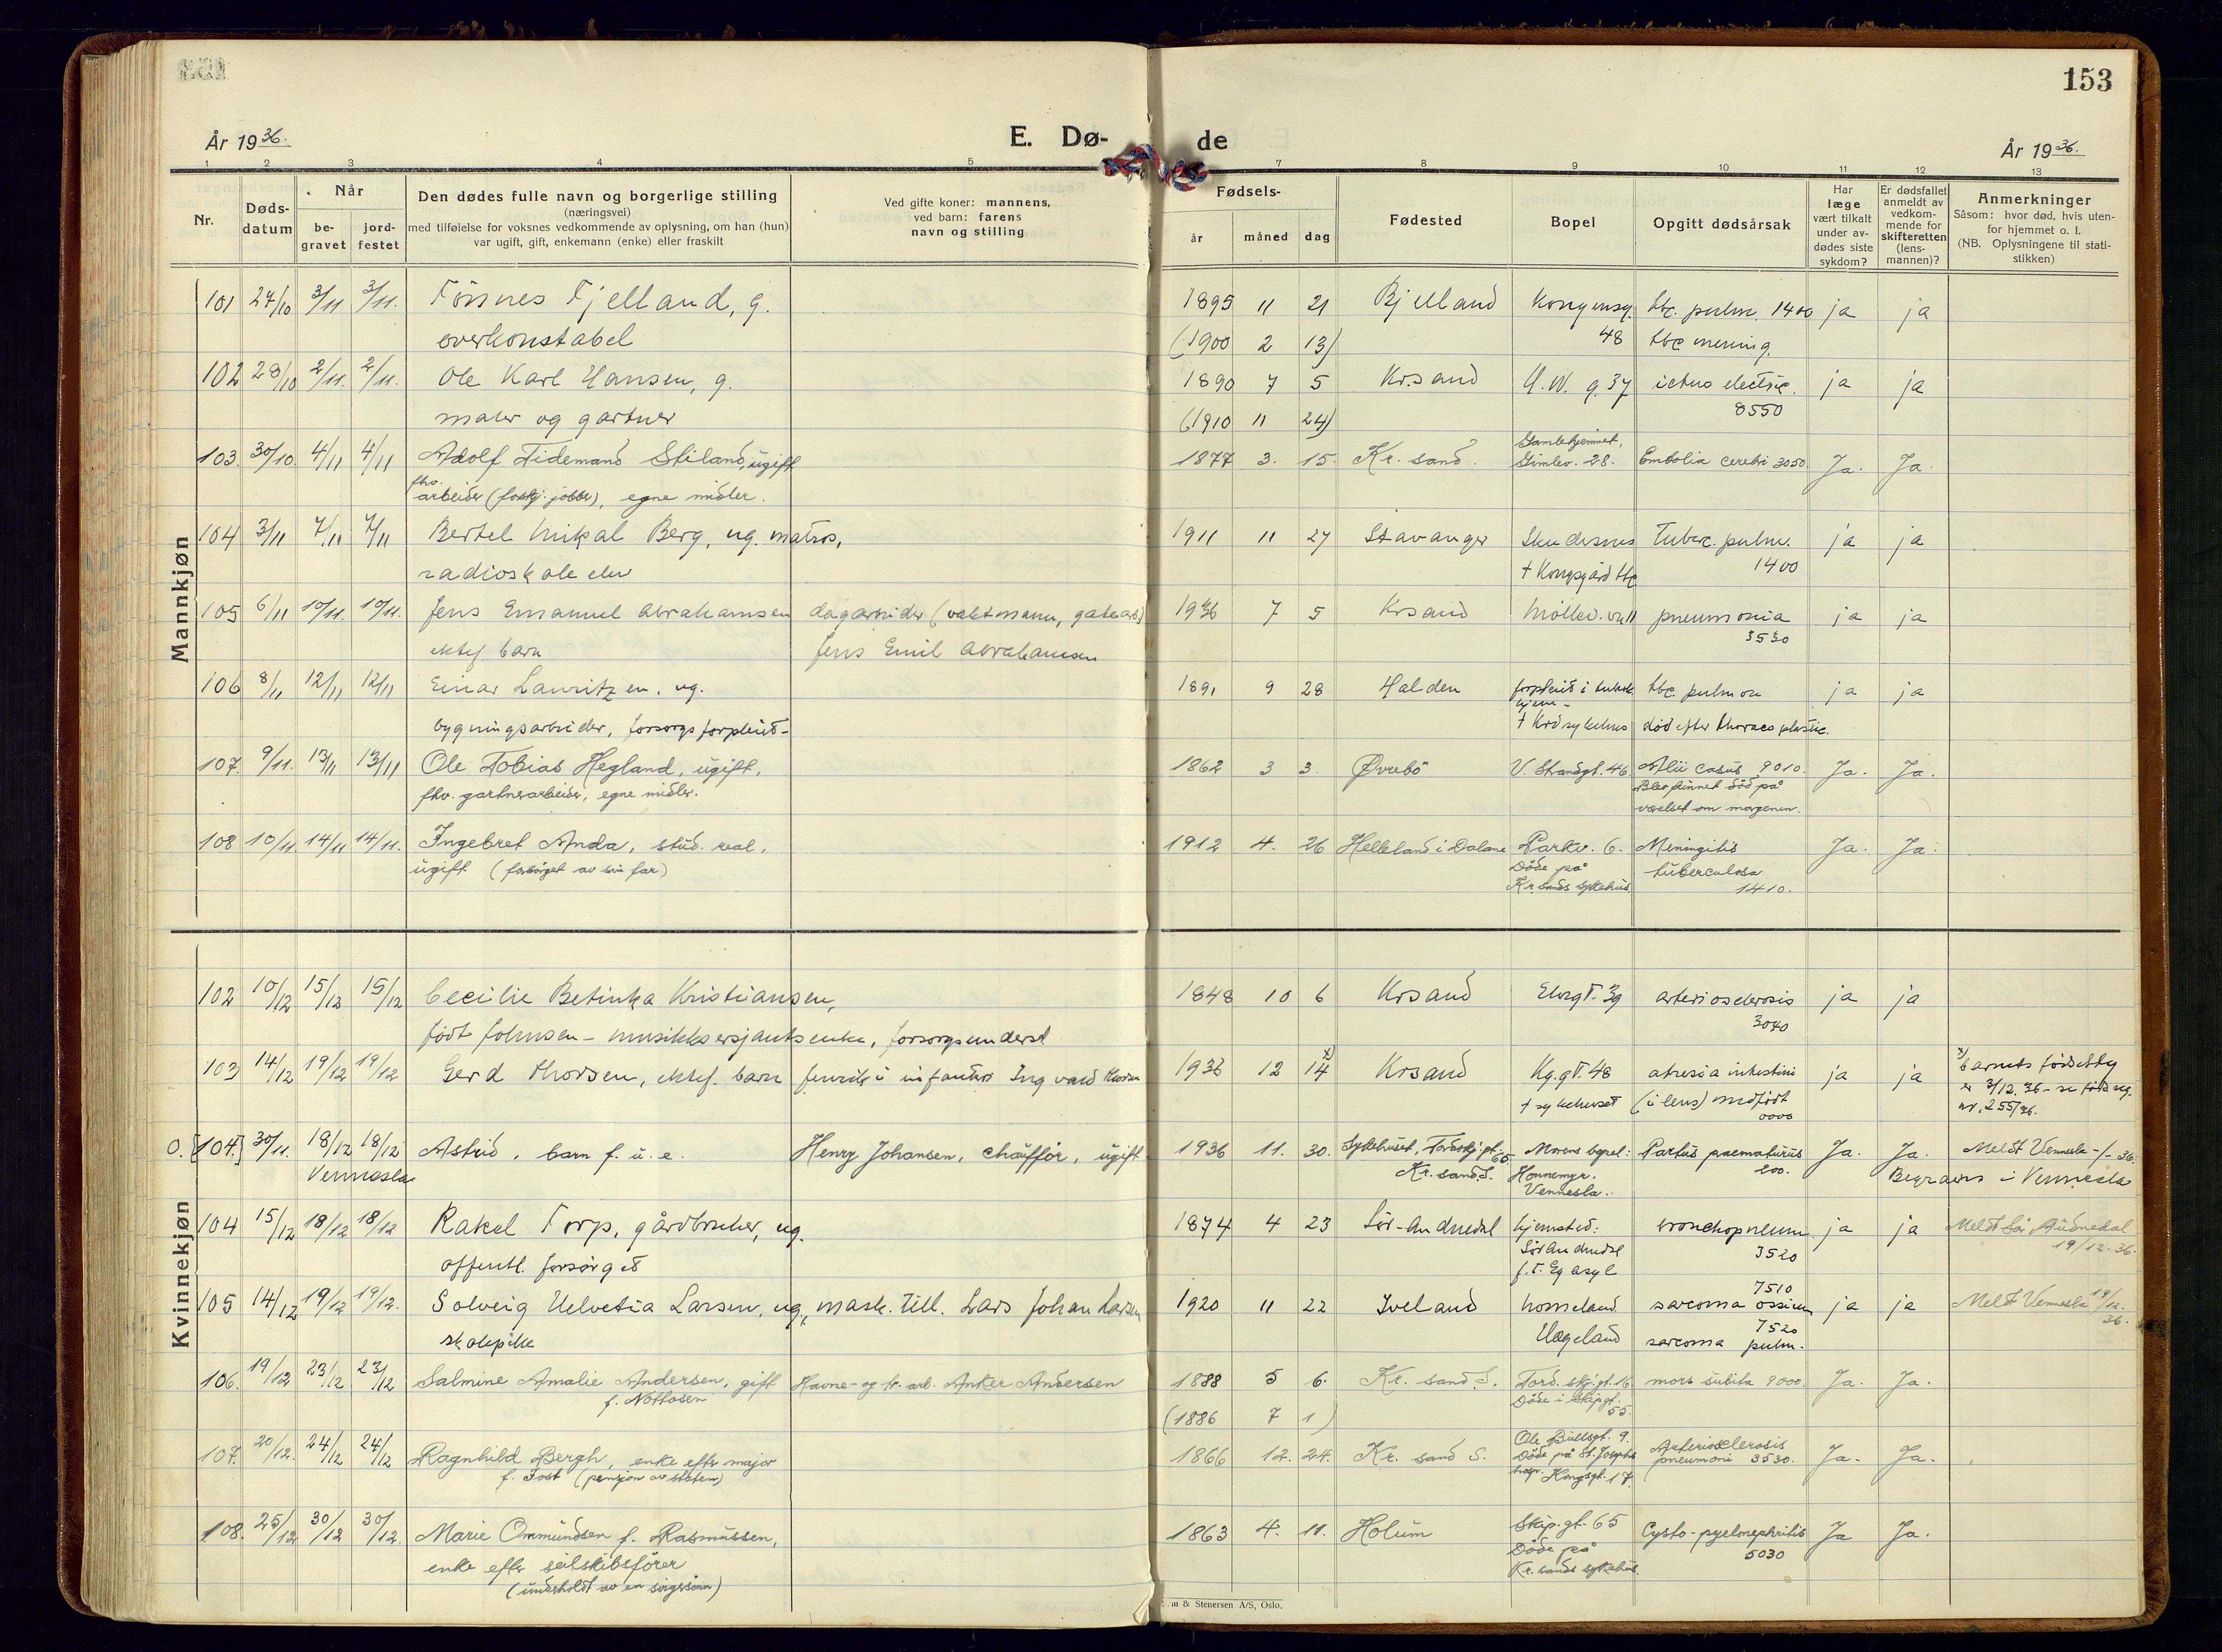 153
År 1936.
E. Dø-de
År 1936.
1 2 3 4 5 7 8 9 10 11 12 13
Nr.
Døds-datum
Når
be-gravet
jord-festet
Den dødes fulle navn og borgerlige stilling
(næringsvei)
med tilføielse for voksnes vedkommende av oplysning, om han (hun)
var ugift, gift, enkemann (enke) eller fraskilt
Ved gifte koner: mannens,
ved barn: farens
navn og stilling
Fødsels-
år måned dag
Fødested
Bopel
Opgitt dødsårsak
Har læge vært tilkalt under av-dødes siste sykdom?
Er dødsfallet anmeldt av vedkom-mende for skifteretten (lens-mannen)?
Anmerkninger
Såsom: hvor død, hvis uten-for hjemmet o. l.
(NB. Oplysningene til stati-stikken)
Mannkjøn
101 27/10 3/11 3/11. Tönnes Fjelland, g. 1895 11 21 Bjelland Kongensg. tbc. pulm. 1400 ja ja
overkonstabel (1900 2 13) 48 tbc mening.
102 28/10 2/11. 2/11. Ole Karl Hansen, g. 1890 7 5 Kr.sand H.W. g. 37 ictus electric. ja ja
maler og gartner (1910 11 24) 8550
103. 30/10. 4/11 4/11 Adolf Tidemand Stiland, ugift 1877 3. 15. Kr. sand. Gamlehjemmet, Gimlev. 28. Embolia cerebri 3050. Ja. Ja.
fhv. arbeider (forskj. jobber), egne midler.
104 3/11 7/11 7/11 Bertel Mikal Berg, ug. matros, 1911 11 27 Stavanger Skudesnes Tuberc. pulm. ja ja
radioskole elev + Kongsgård tbc 1400
105 6/11 10/11. 10/11. Jens Emanuel Abrahamsen dagarbeider (vaktmann, gatearb) 1936 7 5 Krsand Möllev. pneumonia ja ja
ektef barn Jens Emil Abrahamsen 3530
106 8/11 12/11 12/11 Einar Lauritzen, ug. 1891 9 28 Halden forpleid i tuberk. hjem - tbc. pulmon ja ja
bygningsarbeider, forsorgsforpleid - + Krsd sykehus död efter thoraco plastic.
107. 9/11. 13/11 13/11 Ole Tobias Hegland, ugift, 1862 3 3. Øvrebö V. Strandgt. 46. Alii casus 9010. Ja. Ja.
fhv. gartnerarbeider, egne midler. Blev funnet död på
værelset om morgenen.
108 10/11. 14/11 14/11. Ingebret Anda, stud. real, 1912 4. 26 Helleland i Dalane Parkv. 6. Meningitis Ja. Ja.
ugift (forsörget av sin far) Döde på Kr. sands sykehus. tuberculosa 1410.
Kvinnekjøn
102 10/12 15/12 15/12 Cecilie Betinka Kristiansen, 1848 10 6 Krsand Elvegt. 39 arteriosclerosis ja ja
födt Johnsen - musikksersjants enke, forsorgsunderst. 3040
103 14/12 19/12 19/12 Gerd Thorsen, ektef. barn fenrik i infanteri Ingvald Thorsen 1936 12 14 x) Krsand Kg.gt. 48 atresia intestini ja ja x) barnets födselsdag
+ sykehuset (ileus) medfödt 0000 er 3/12 36 - se föds.reg. nr. 255/36.
0. [104.] 30/11. 18/12 18/12 Astrid, barn f. u. e. Henry Johansen, chauffør, ugift 1936 11. 30. Sykehuset, Tordskj.gt. 65 Kr.sand S. Morens bopel: Honnemyr. Vennesla. Partus præmaturus Ja. Ja. Meldt Vennesla -/- 36.
Vennesla Begraves i Vennesla
104 15/12 18/12 18/12 Rakel Torp, gårdbruker, ug. 1874 4 23 Sör-Audnedal hjemsted: bronchopneum. ja ja Meldt Sör Audnedal 19/12. 36.
offentl. forsörget Sör Audnedal f.t. Eg asyl 3520
105 14/12 19/12 19/12. Solveig Helvetia Larsen, ug., mask. till. Lars Johan Larsen 1920 11 22 Iveland homeland 7510 sarcoma ossium ja ja Meldt Vennesla 19/12. 36.
skolepike Hægeland 7520 sarcoma pulm.
106. 19/12 23/12 23/12 Salmine Amalie Andersen, gift Havne- og tr. arb. Anker Andersen 1888 5 6. Kr. sand S. Tord. skj.gt. 16 mors subita 9000. Ja. Ja.
f. Nottosen (1886 7 1) Döde i Skipgt. 55.
107. 20/12. 24/12 24/12 Ragnhild Bergh, enke efter major 1866 12. 24. Kr. sand S. Ole Bullsgt. 9. Döde på St. Josephs hosp. Kongsgt. 17. Arteriosclerosis pneumoni 3530. Ja. Ja.
f. Tost (pensjon av staten)
108. 25/12 30/12 30/12. Marie Ommundsen f. Rasmussen, 1863 4. 11. Holum Skip.gt. 65 Cysto-pyelonephritis Ja Ja.
enke efter seilskibsförer Döde på 5030
(underholdt av en svigersönn) Kr. sands sykehus.
& Stenersen A/S, Oslo.